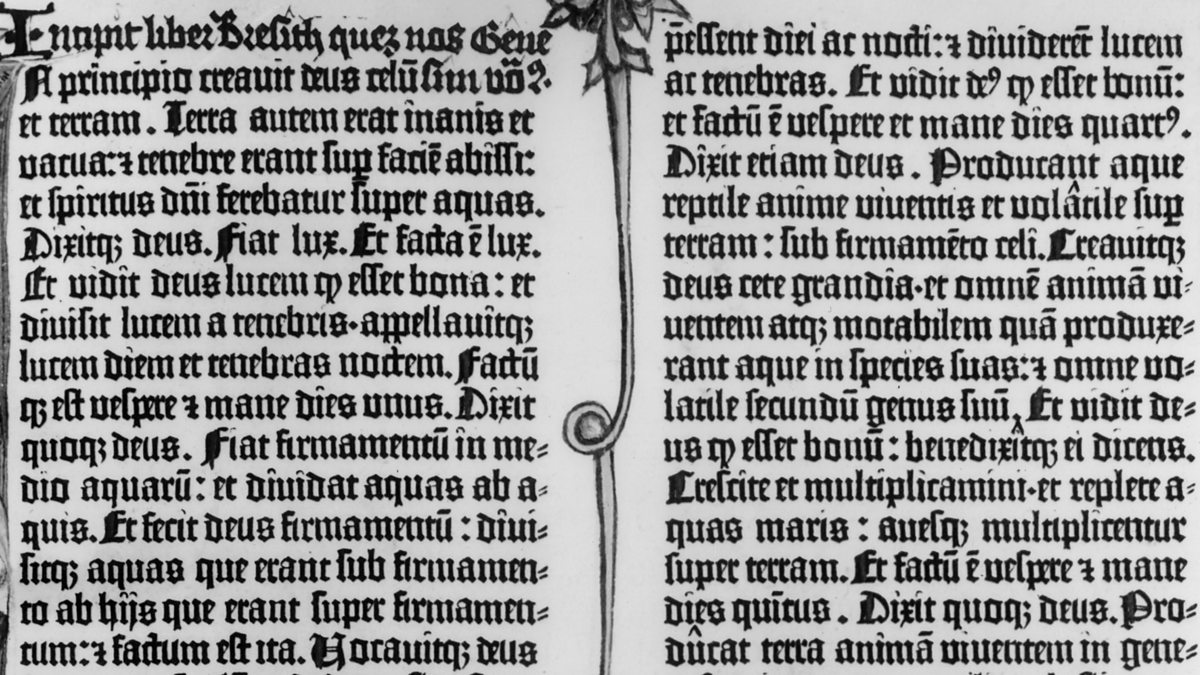 Incipit liber Bresith quez nos Gene
A principio creauit deus celū sim vōꝰ.
et terram. Terra autem erat inanis et
vacua: ⁊ tenebre erant sup̱ faciē abissi:
et spiritus dn̄i ferebatur super aquas.
Dixitqꝫ deus. Fiat lux. Et facta ē lux.
Et vidit deus lucem ꝙ esset bona: et
diuisit lucem a tenebris·appellauitqꝫ
lucem diem et tenebras noctem. Factū
qꝫ est vespere ⁊ mane dies vnus. Dixit
quoqꝫ deus. Fiat firmamentū in me⸗
dio aquarū: et diuidat aquas ab a⸗
quis. Et fecit deus firmamentū: diui⸗
sitqꝫ aquas que erant sub firmamen⸗
to ab hijs que erant super firmamen⸗
tum: ⁊ factum est ita. Vocauitqꝫ deus
p̄essent diei ac nocti: ⁊ diuiderēt lucem
ac tenebras. Et vidit deꝰ ꝙ esset bonū:
et factū ē vespere et mane dies quartꝰ.
Dixit etiam deus. Producant aque
reptile anime viuentis et volatile sup̱
terram: sub firmamēto celi. Creauitqꝫ
deus cete grandia·et omnē animā vi⸗
uentem atqꝫ motabilem quā produxe⸗
rant aque in species suas: ⁊ omne vo⸗
latile secundū genus suū. Et vidit de⸗
us ꝙ esset bonū: benedixitqꝫ ei dicens.
Crescite et multiplicamini·et replete a⸗
quas maris: auesqꝫ multiplicentur
super terram. Et factū ē vespere ⁊ mane
dies quītus. Dixit quoqꝫ deus. Pro⸗
ducat terra animā viuentem in gene⸗